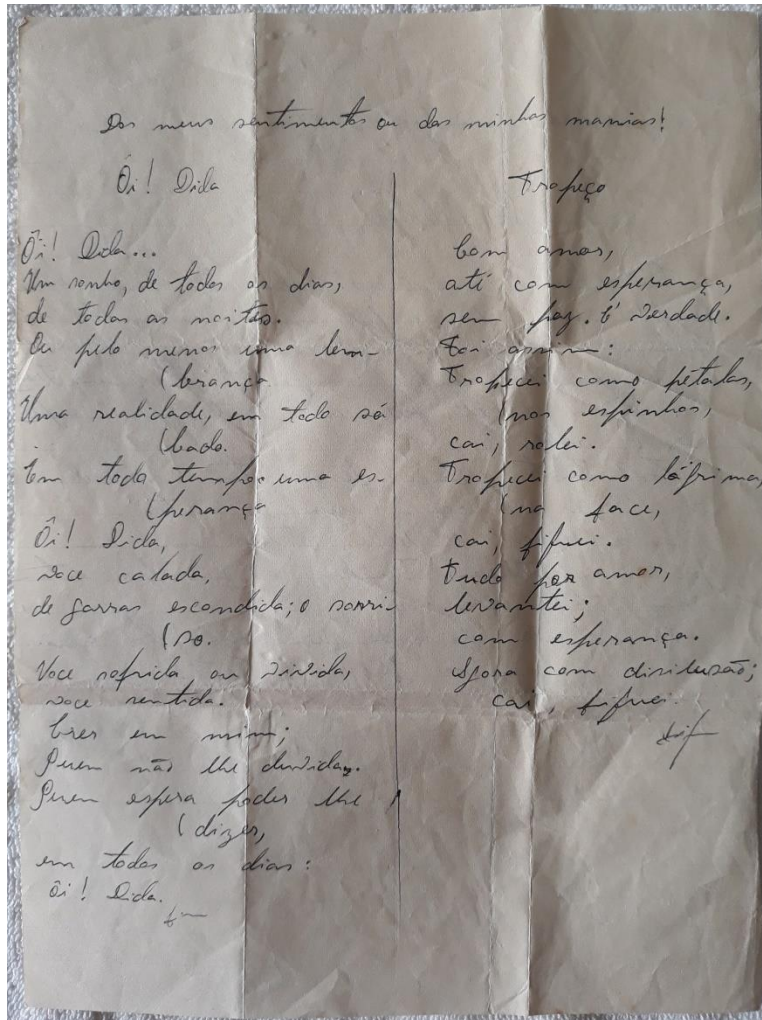 Dos meus sentimentos ou das minhas manias!
Ôi! Dida
Ôi! Dida...
Um sonho, de todos os dias,
de todas as noites.
Ou pelo menos uma lem-
(brança
Uma realidade, em todo sá
(bado.
Em todo tempo uma es-
(perança
Ôi! Dida,
voce calada,
de garras escondida; o sorri-
(so.
Voce sofrida ou vivida,
voce sentida.
Crer em mim;
Quem não lhe duvida.
Quem espera poder lhe
(dizer,
em todos os dias:
ôi! Dida.
Tropeço
Com amor,
até com esperança,
sem paz. É verdade.
Foi assim:
Tropecei como pétalas,
(nos espinhos,
cai, rolei.
Tropecei como lágrima,
(na face,
cai, fiquei.
Tudo por amor,
levantei;
com esperança.
Agora com disilusão;
cai, fiquei.